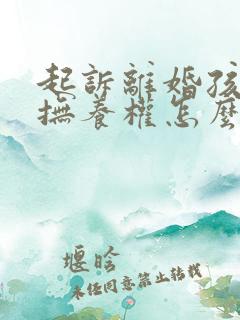 起訴離婚孩
撫養權怎麼
堰晗
未經同意禁止轉載